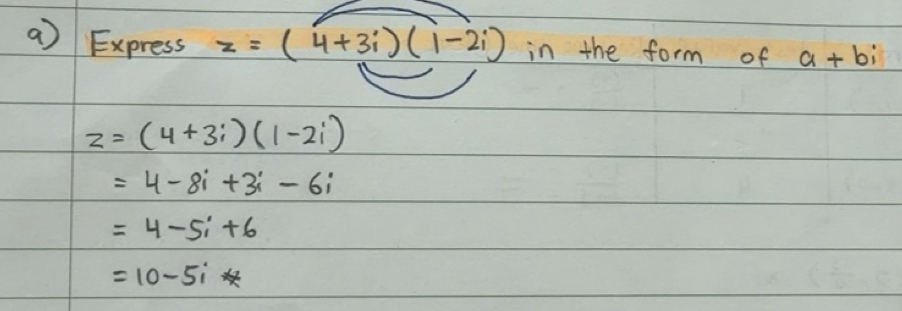 a) Express z = (4+3i)(1-2i) in the form of a + bi
z = (4+3i)(1-2i)
= 4-8i +3i - 6i
= 4-5i +6
= 10-5i *